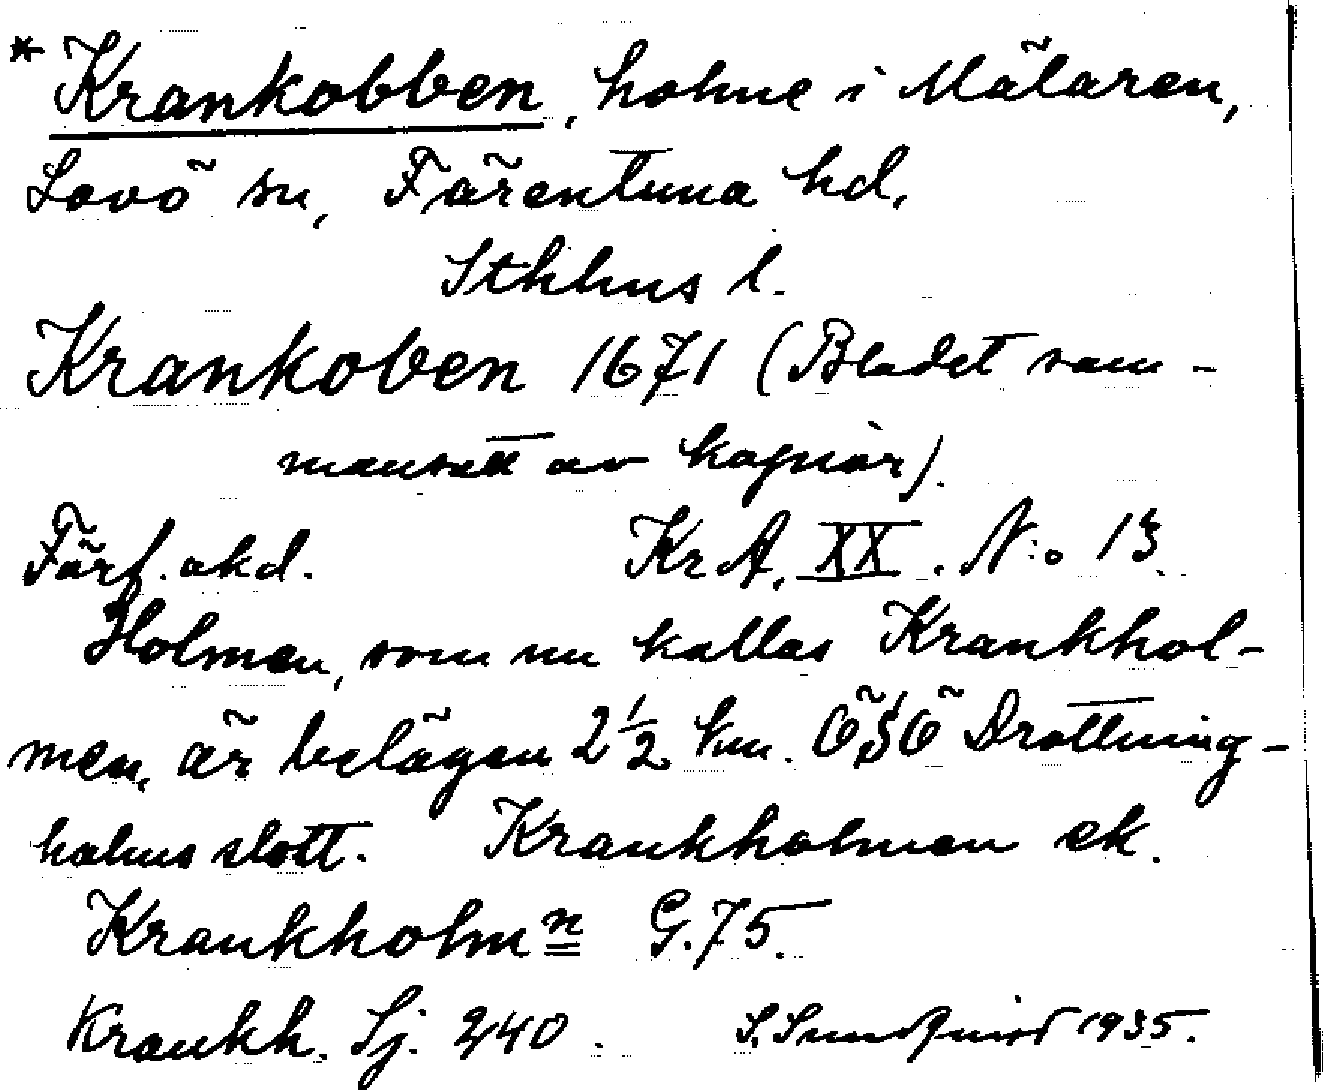 * Krankobben, holme i Mälaren,
Lovö sn, Färentuna hd,
Sthlms l.
Krankoben 1671 (Bladet sam-
mansatt av kopior).
Förf. okd. KrA, XX. N:o 13
Holmen, som nu kallas Krankhol-
men, är belägen 2½ km. ÖSÖ Drottning-
holms slott. Krankholmen ek.
Krankholmn G.75.
Krankh. Sj. 240. S. Sundquist 1935.